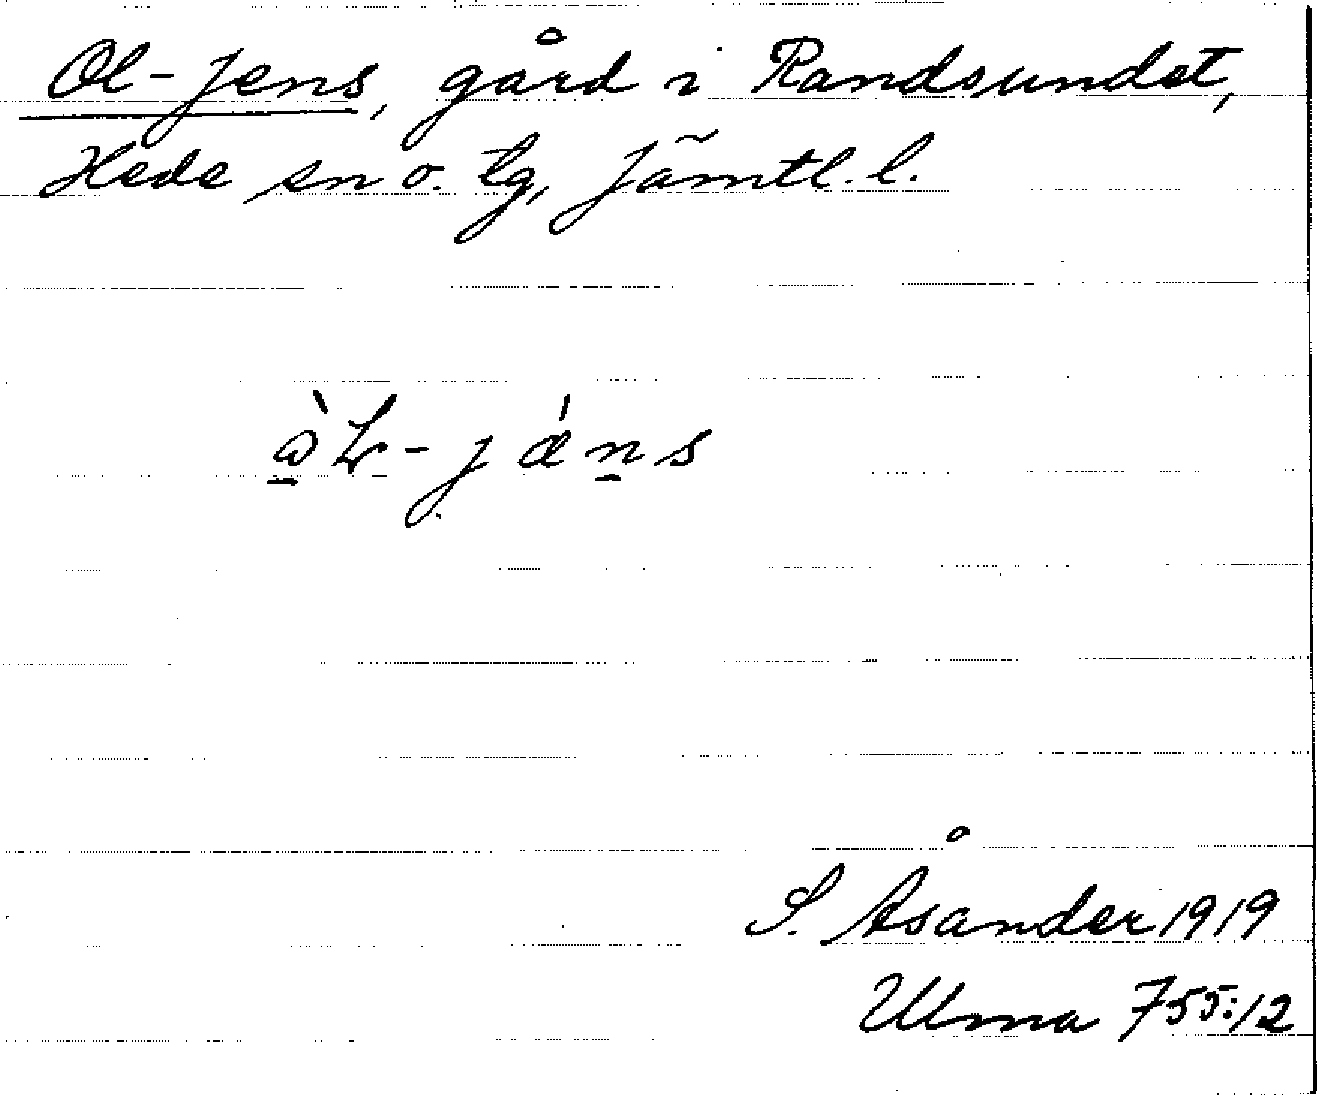 Ol-Jens, gård i Randsundet,
Hede sn o. tg, Jämtl. l.
ὼL-jǽns
S. Åsander 1919
Ulma 755:12